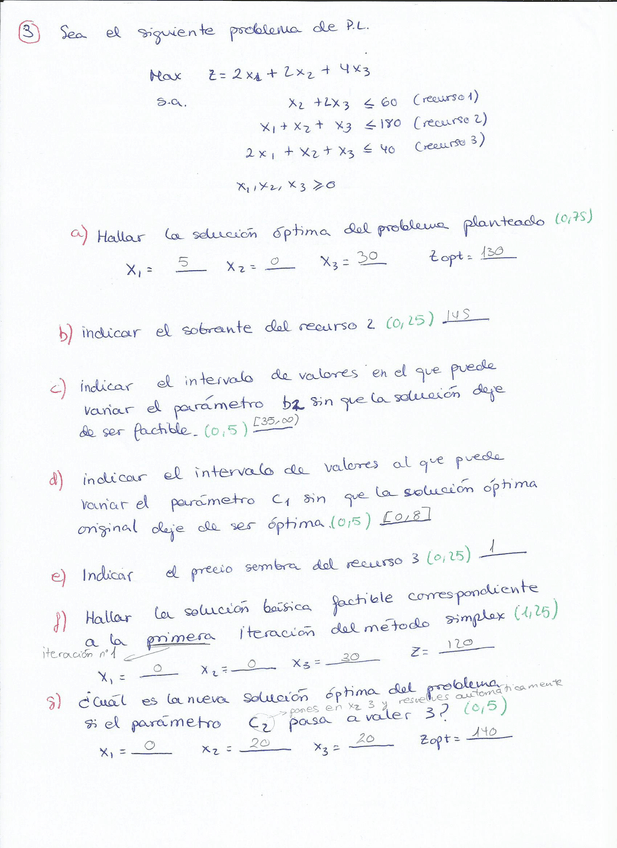 3 Sea el siguiente problema de P.L.
Max Z = 2x1 + 2x2 + 4x3
s.a. x2 + 2x3 ≤ 60 (recurso 1)
x1 + x2 + x3 ≤ 180 (recurso 2)
2x1 + x2 + x3 ≤ 40 (recurso 3)
x1, x2, x3 ≥ 0
a) Hallar la solución óptima del problema planteado (0,75)
x1 = 5 x2 = 0 x3 = 30 Zopt = 130
b) indicar el sobrante del recurso 2 (0,25) 145
c) indicar el intervalo de valores en el que puede
variar el parámetro b2 sin que la solución deje
de ser factible. (0,5) [35,∞)
d) indicar el intervalo de valores al que puede
variar el parámetro C1 sin que la solución óptima
original deje de ser óptima. (0,5) [0,8]
e) Indicar el precio sombra del recurso 3 (0,25) 1
f) Hallar la solución básica factible correspondiente
a la primera iteración del método simplex (1,25)
iteración nº1
x1 = 0 x2 = 0 x3 = 30 Z = 120
g) ¿Cuál es la nueva solución óptima del problema
pones en x2 3 y resuelves automáticamente
si el parámetro C2 pasa a valer 3? (0,5)
x1 = 0 x2 = 20 x3 = 20 Zopt = 140